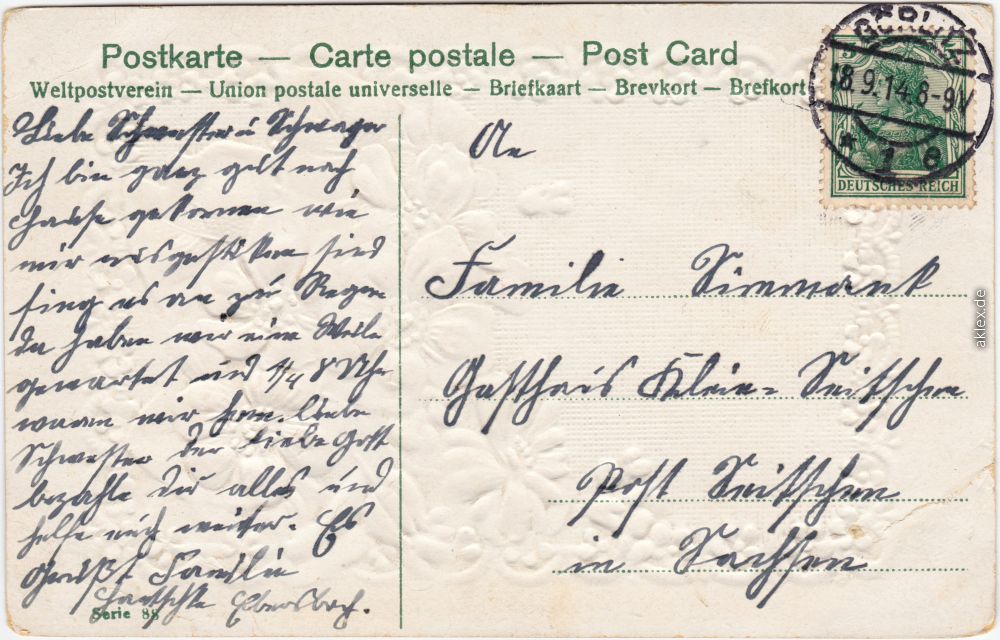 Postkarte — Carte postale — Post Card
Weltpostverein — Union postale universelle — Briefkaart — Brevkort — Brefkort
GÖRLITZ
18.9.14.8-9V
* 1 e
DEUTSCHES REICH
Liebe Schwester u Schwager
Ich bin ganz gut nach
Hause gekomen wie
mir ausgestiken sind
fing es an zu Regen
da haben wir eine Weile
gewartet und 1/4 8 Uhr
waren wir heim. Liebe
Schwester der Liebe Gott
bezahle dir alles und
helfe euch weiter. Es
Grüßt Familie
Ebersbch.
Serie 88
An
Familie Simmank
Gasthaus Klein-Seitschen
Post Seitschen
in Sachsen
aklex.de